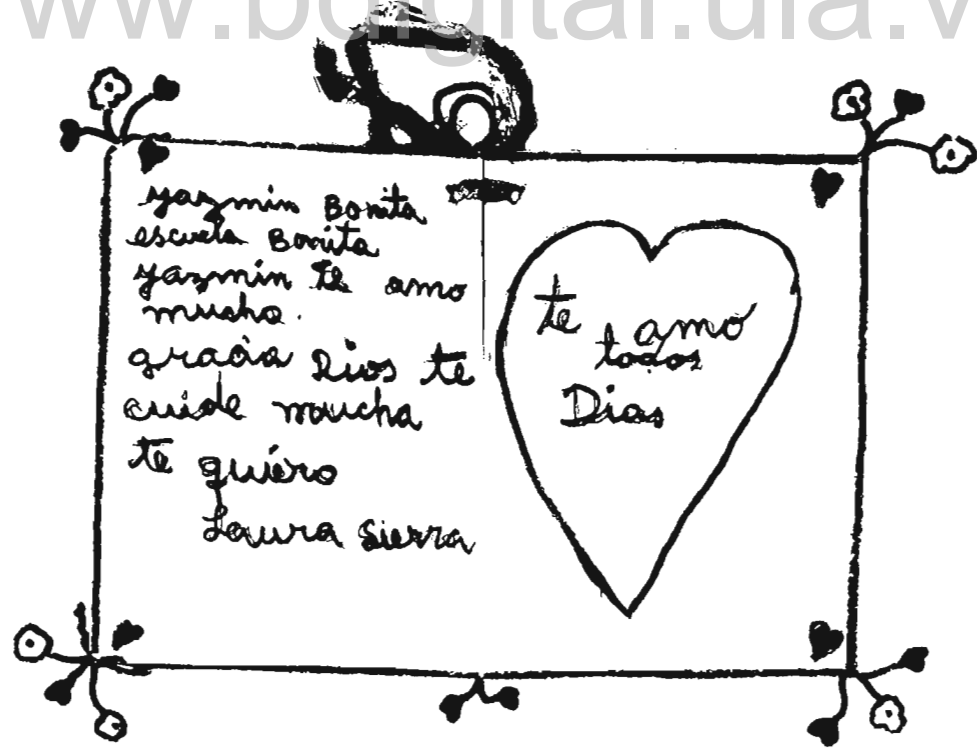 yazmin Bonita
escuela Bonita
yazmin te amo
mucho.
gracia Dios te
cuide mucha
te quiero
Laura Sierra
te amo
todos
Dias